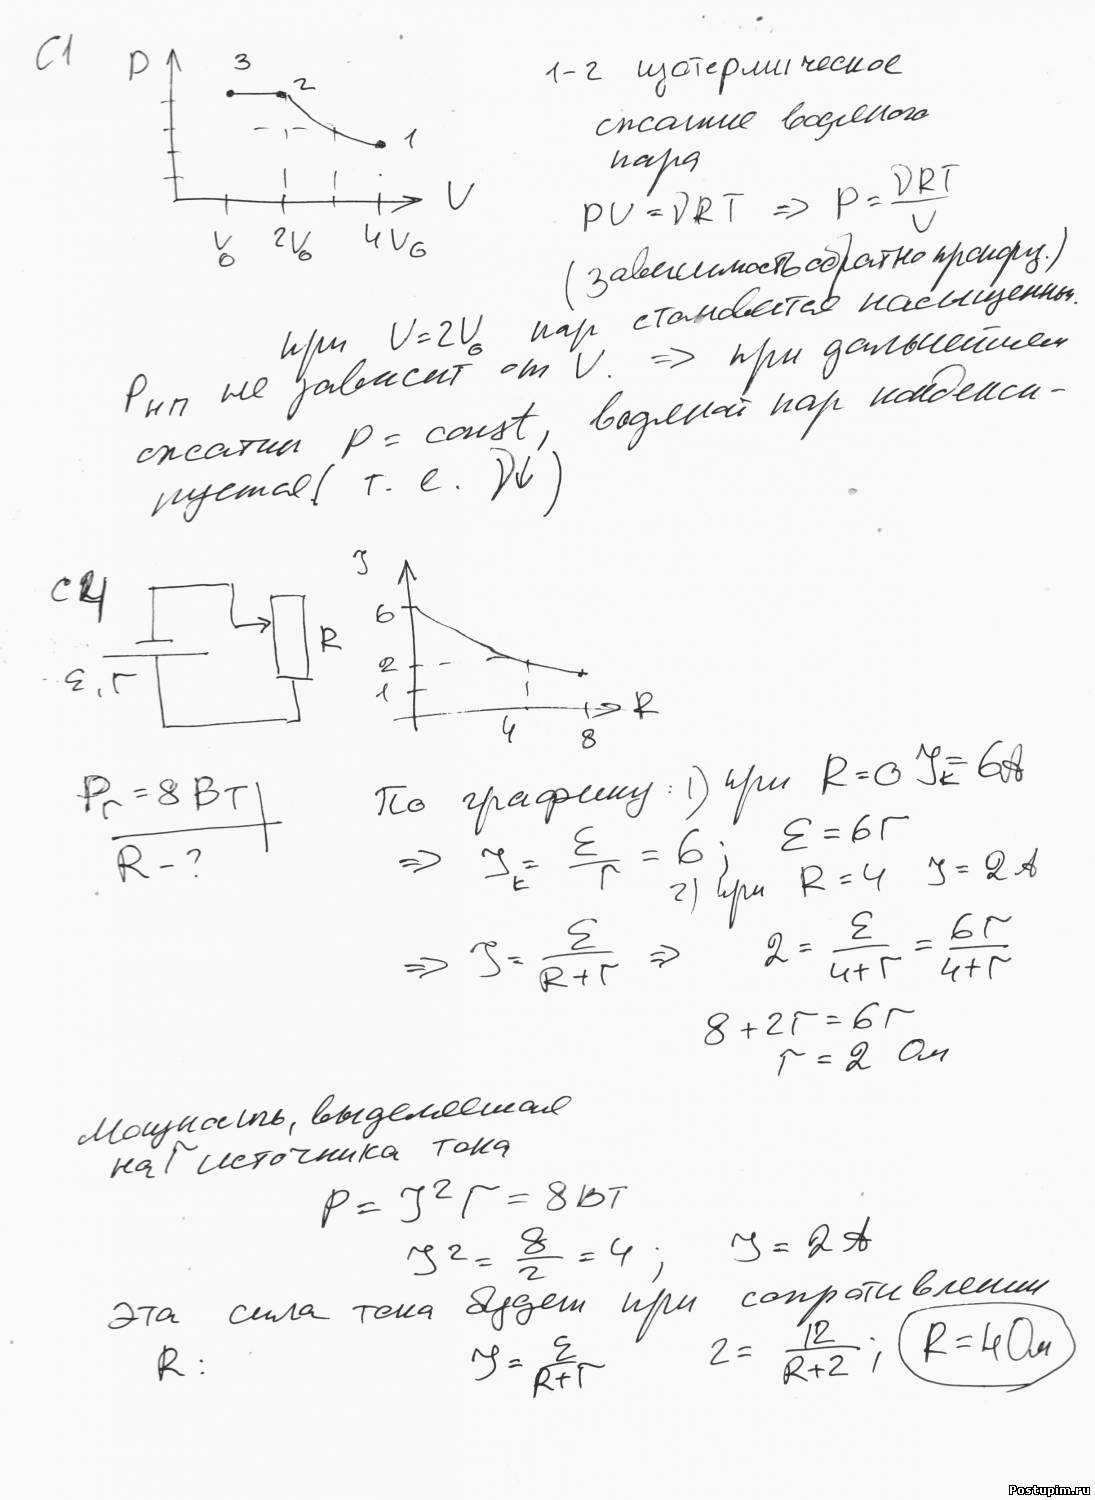 С1
P
3
2
1
V
V₀ 2V₀ 4V₀
1-2 изотермическое
сжатие водяного
пара
PV = νRT => P = νRT/V
(зависимость обратно пропорц.)
при V=2V₀ пар становится насыщенным.
Pнп не зависит от V. => при дальнейшем
сжатии p = const, водяной пар конденси-
руется (т. е. ν↓)
С4
ε, r
R
I
6
2
1
4
8
R
Pr = 8 Вт
R - ?
По графику: 1) при R=0 Iк = 6А
=> Iк = ε/r = 6; ε = 6r
2) при R = 4 I = 2А
=> I = ε/(R+r) => 2 = ε/(4+r) = 6r/(4+r)
8 + 2r = 6r
r = 2 Ом
Мощность, выделяемая
на r источника тока
P = I²r = 8Вт
I² = 8/2 = 4; I = 2А
Эта сила тока будет при сопротивлении
R: I = ε/(R+r) 2 = 12/(R+2); R = 4 Ом
Postupim.ru